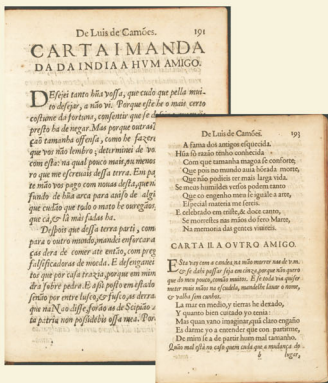 De Luis de Camões. 191
CARTA I MANDA
DA DA INDIA A HVM AMIGO.
DEsejei tanto hũa vossa, que cudo que pella mui-
to desejar, a não vi. Porque este he o mais certo
costume da fortuna, consentir que se
presto ha de negar. Mas porque outras
ção tamanha offensa, como he fazerem
que vos não lembro, determinei de vos
com esta: na qual pouco mais, ou menos
ro que me escrevais dessa terra. Em pa
te mão vos pago com novas desta, que n
fundo de hũa arca para aviso de algũ
que cudão que todo o mato he ouregãos,
que cá, & lá más fadas ha.
Despois que dessa terra parti, com
para o outro mundo, mandei enforcar a
ças dera de comer até então, com pre
falsificadoras de moeda. E desenganei
tos que por casa trazia, porque em mim
dra sobre pedra. E assi posto em estado
senão por entre lusco, & fusco, as derra
que na Nao disse, forão as de Scipião a
ta patria non possidebis ossa mea. Por
De Luis de Camões. 193
A fama dos antigos esquecida.
Hũa só razão tenho conhecida
Com que tamanha magoa se conforte,
Que pois no mundo avia honrada morte,
Que não podieis ter mais larga vida.
Se meus humildes versos podem tanto
Que co engenho meu se iguale a arte,
Especial materia me sereis.
E celebrado em triste, & doce canto,
Se morrestes nas mãos do fero Marte,
Na memoria das gentes vivireis.
CARTA II. A OVTRO AMIGO.
ESta vay com a candea na mão morrer nas de v. m.
& se dahi passar seja em cinza, porque não quero
que do meu pouco, comão muitos. E se toda via quiser
meter mais mãos na escudela, mandelhe lavar o nome,
& valha sem cunhos.
La mar en medio, y tierras he dexado,
Y quanto bien cuitado yo tenia:
Mas quan vano imaginar, quã claro engaño
Es darme yo a entender que con partirme,
De mim se a de partir hum mal tamanho.
Quão mal está no caso quem cuda que a mudança do
lugar,